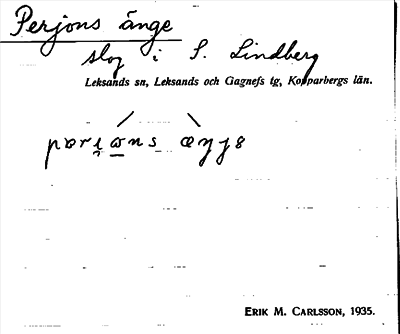 Perjons änge
slog i S. Lindberg
Leksands sn, Leksands och Gagnefs tg, Kopparbergs län.
ERIK M. CARLSSON, 1935.